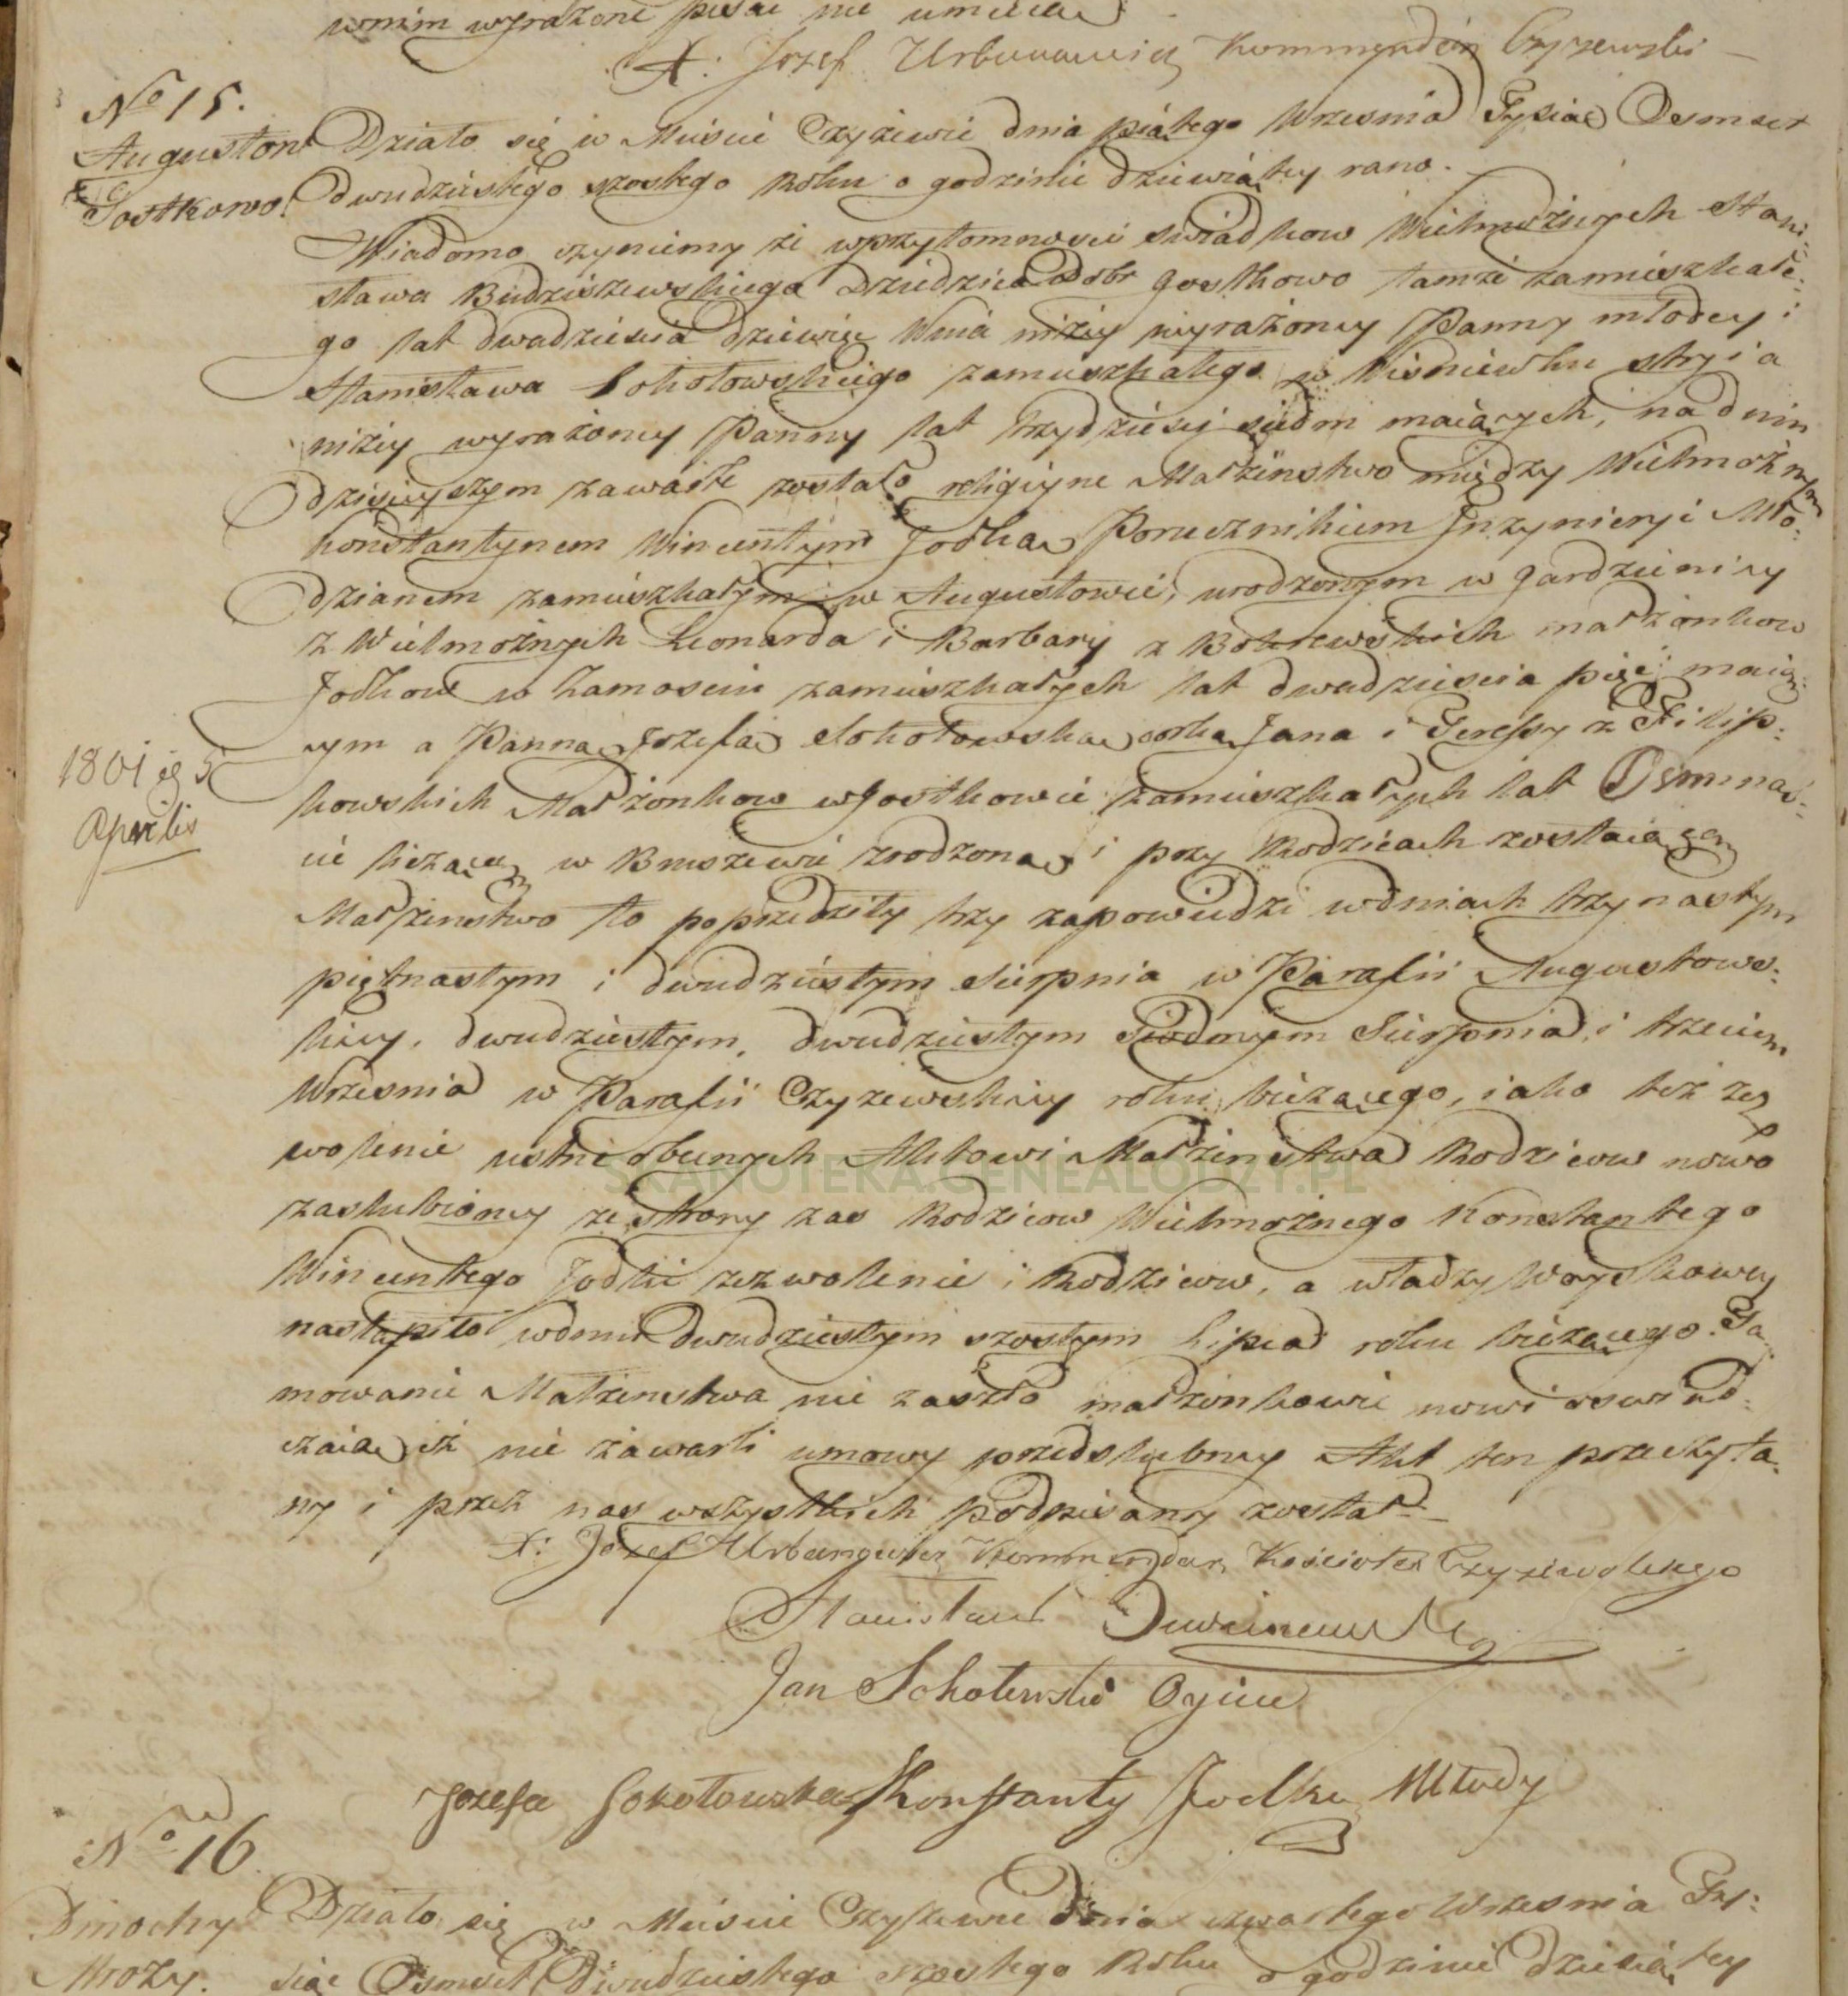 wnim wyrażone pisać nie umieią
X: Jozef Urbanowicz Kommendarz Czyzewski
No 15.
Augustow
Gostkowo.
Działo się w Mieście Czyżewie dnia piątego Września Tysiąc Osmset
dwudziestego szostego Roku o godzinie dziewiątey rano.
Wiadomo czyniemy że wprzytomności świadkow Wielmożnych Stani:
sława Budziszewskiego Dziedzica Dobr Gostkowo tamże zamieszkałe:
go lat dwadzieścia dziewięć Wuia niżey wyrażoney Panny młodey i
Stanisława Sokołowskiego zamieszkałego w Wiśniewku stryia
niżey wyrażoney Panny lat trzydzieści siedm maiących, na dniu
dzisieyszym zawarte zostało religiyne Małżeństwo między Wielmożnym
Konstantynem Wincentym Jodką Porucznikiem Inżynieryi Mło:
dzianem zamieszkałym w Augustowie, urodzonym w Gardzienicy
z Wielmożnych Leonarda i Barbary z małżonkow
Jodkow w Zamościu zamieszkałych lat dwadzieścia pięć maią:
cym a Panną Jozefą Sokołowską corką Jana i Teressy z Filip:
kowskich Małżonkow w Gostkowie zamieszkałych lat Osmnaś:
1801 eg 5
Aprilis
cie liczącą w Bruszewie zrodzoną i przy Rodzicach zostaiącą
Małżeństwo to poprzedziły trzy zapowiedzi w dniach trzynastym
piętnastym i dwudziestym Sierpnia w Parafii Augustows:
kiey, dwudziestym, dwudziestym siodmym Sierpnia i trzecim
Września w Parafii Czyżewskiey roku bieżącego, iako też ze
wolenie ustne obecnych Aktowi Małżeństwa Rodzicow nowo
SKANOTEKA.GENEALODZY.PL
zaślubioney ze strony zaś Rodzicow Wielmożnego Konstantego
Wincentego Jodki zezwolenie i Rodzicow, a władzy Woyskowey
nastąpiło w dniu dwudziestym szostym Lipca roku bieżącego. Ta
mowanie Małżeństwa nie zaszło małżonkowie nowi oswiad:
czaią iż nie zawarli umowy przedślubney Akt ten przeczyta:
ny i przez nas wszystkich podpisany został.
X: Jozef Urbanowicz Kommendarz Kościoła Czyżewskiego
Stanisław
Jan Sokołowski Oyciec
Jozefa Sokołowska Konstanty Jodko Młody
No 16
Dmochy
Mrozy.
Działo się w Mieście Czyżewie Dnia czwartego Września Ty:
siąc Osmset Dwudziestego szostego Roku o godzinie dziesiątey